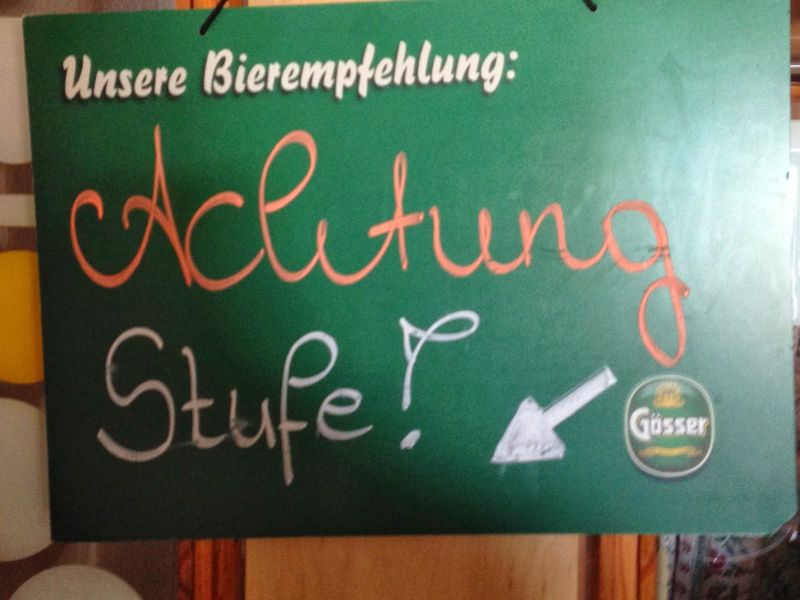 Unsere Bierempfehlung:
Achtung
Stufe!
Gösser